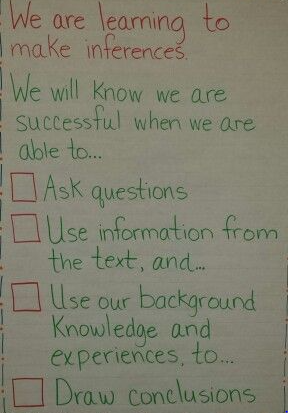 We are learning to
make inferences.
We will know we are
successful when we are
able to...
Ask questions
Use information from
the text, and...
Use our background
Knowledge and
experiences, to...
Draw conclusions